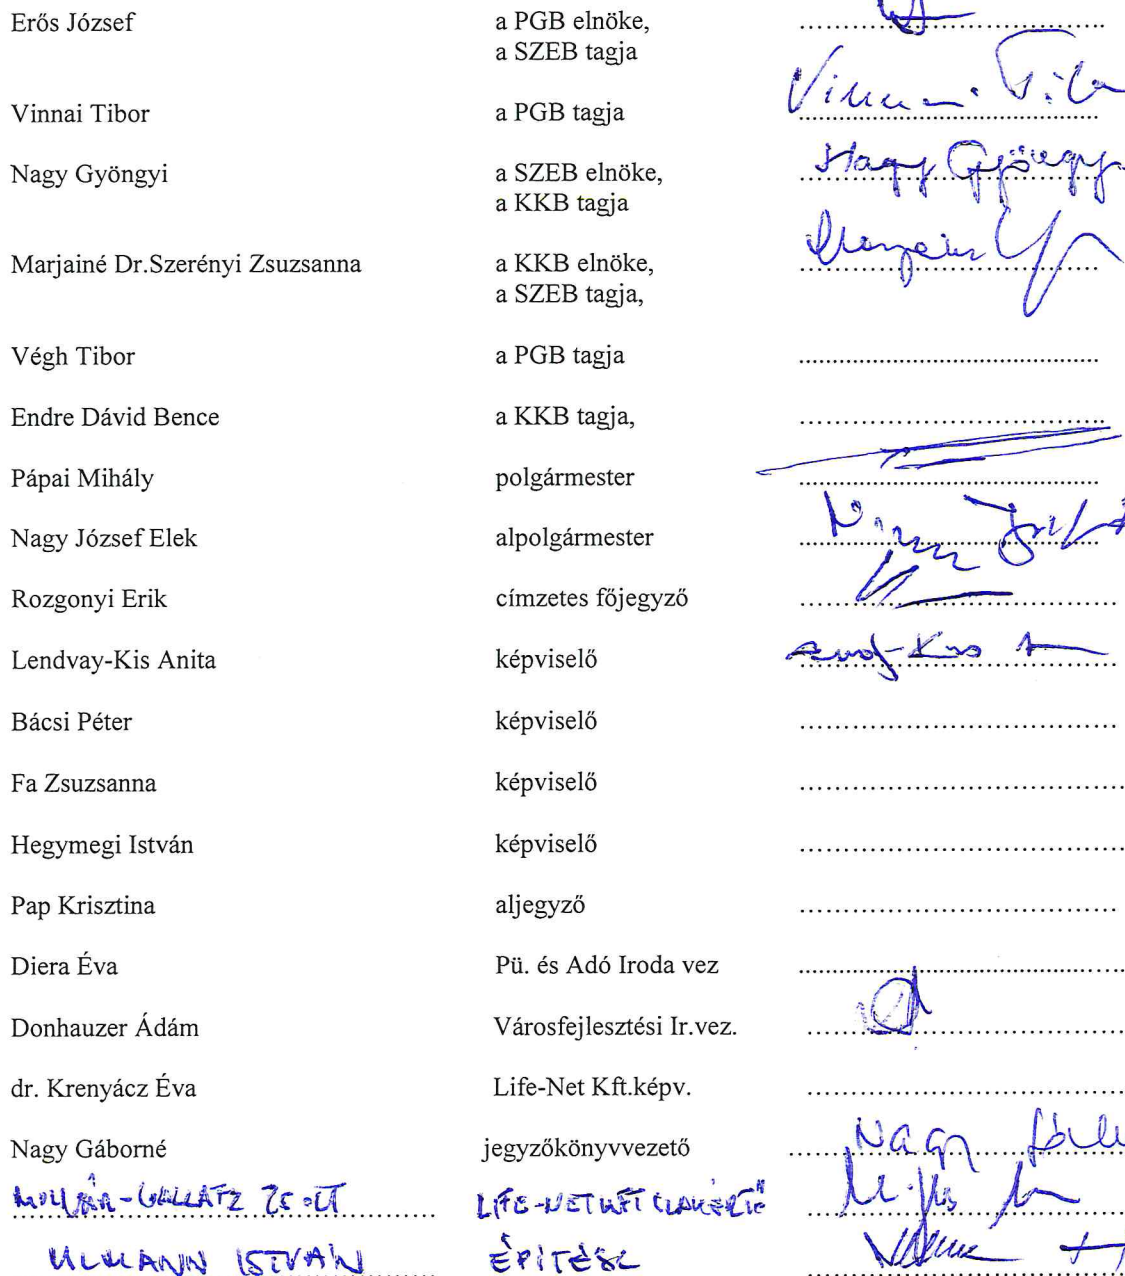 Erős József a PGB elnöke, ........................................
a SZEB tagja
Vinnai Tibor a PGB tagja Vinnai Tibor
Nagy Gyöngyi a SZEB elnöke, Nagy Gyöngyi
a KKB tagja
Marjainé Dr.Szerényi Zsuzsanna a KKB elnöke, ........................................
a SZEB tagja,
Végh Tibor a PGB tagja ........................................
Endre Dávid Bence a KKB tagja, ........................................
Pápai Mihály polgármester ........................................
Nagy József Elek alpolgármester ........................................
Rozgonyi Erik címzetes főjegyző ........................................
Lendvay-Kis Anita képviselő ........................................
Bácsi Péter képviselő ........................................
Fa Zsuzsanna képviselő ........................................
Hegymegi István képviselő ........................................
Pap Krisztina aljegyző ........................................
Diera Éva Pü. és Adó Iroda vez ........................................
Donhauzer Ádám Városfejlesztési Ir.vez. ........................................
dr. Krenyácz Éva Life-Net Kft.képv. ........................................
Nagy Gáborné jegyzőkönyvvezető Nagy
LIFE-NET KFT
ISTVÁN ÉPÍTÉSZ